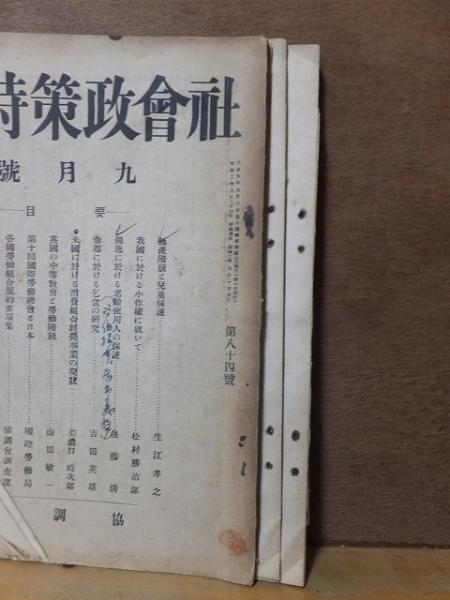 社會政策時
九月號
要目
無產階級と兒童保護……生江孝之
我國に於ける小作權に就いて……松村勝治郎
獨逸に於ける老齡使用人の保護……後藤清
帝都に於ける乞食の研究……吉田英雄
米國に於ける消費組合經營事業の現狀……美濃口時次郎
英國の中等教育と勞働階級……山田敏一
第十回國際勞働總會と日本……國際勞働局
各國勞働組合規約要項集……協調會調查課
第八十四號
協調